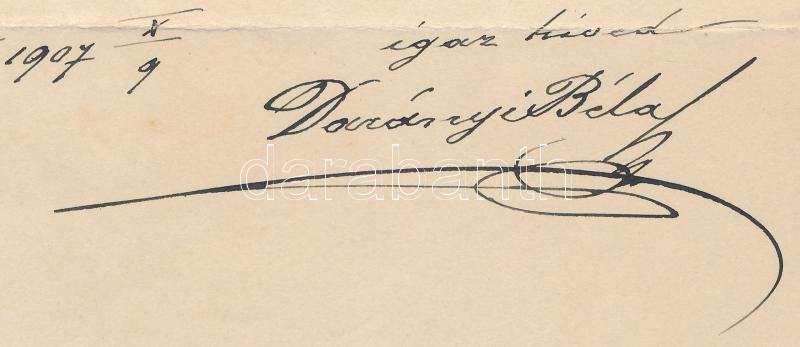 1907 X/9 igaz híved
Darányi Béla
darabanth